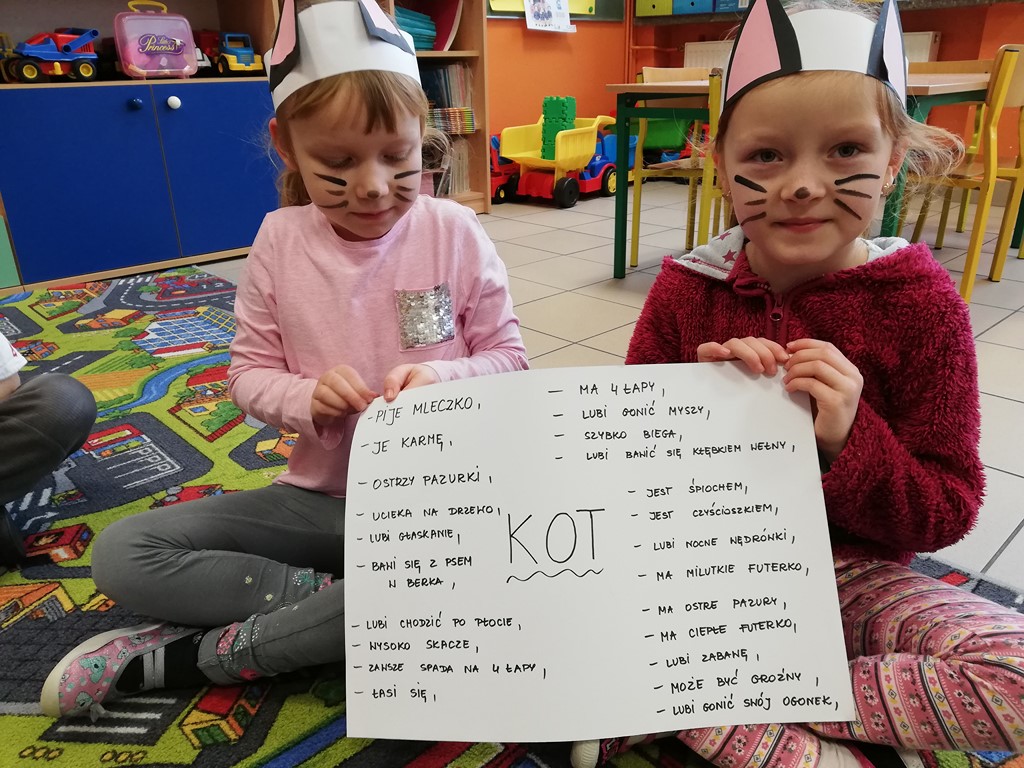 Princess
- PIJE MLECZKO,
- JE KARMĘ,
- OSTRZY PAZURKI,
- UCIEKA NA DRZEWO,
- LUBI GŁASKANIE,
- BAWI SIĘ Z PSEM
W BERKA,
- LUBI CHODZIĆ PO PŁOCIE,
- WYSOKO SKACZE,
- ZAWSZE SPADA NA 4 ŁAPY,
- ŁASI SIĘ,
KOT
- MA 4 ŁAPY,
- LUBI GONIĆ MYSZY,
- SZYBKO BIEGA,
- LUBI BAWIĆ SIĘ KŁĘBKIEM WEŁNY,
- JEST ŚPIOCHEM,
- JEST CZYŚCIOSZKIEM,
- LUBI NOCNE WĘDRÓWKI,
- MA MILUTKIE FUTERKO,
- MA OSTRE PAZURY,
- MA CIEPŁE FUTERKO,
- LUBI ZABAWĘ,
- MOŻE BYĆ GROŹNY,
- LUBI GONIĆ SWÓJ OGONEK,